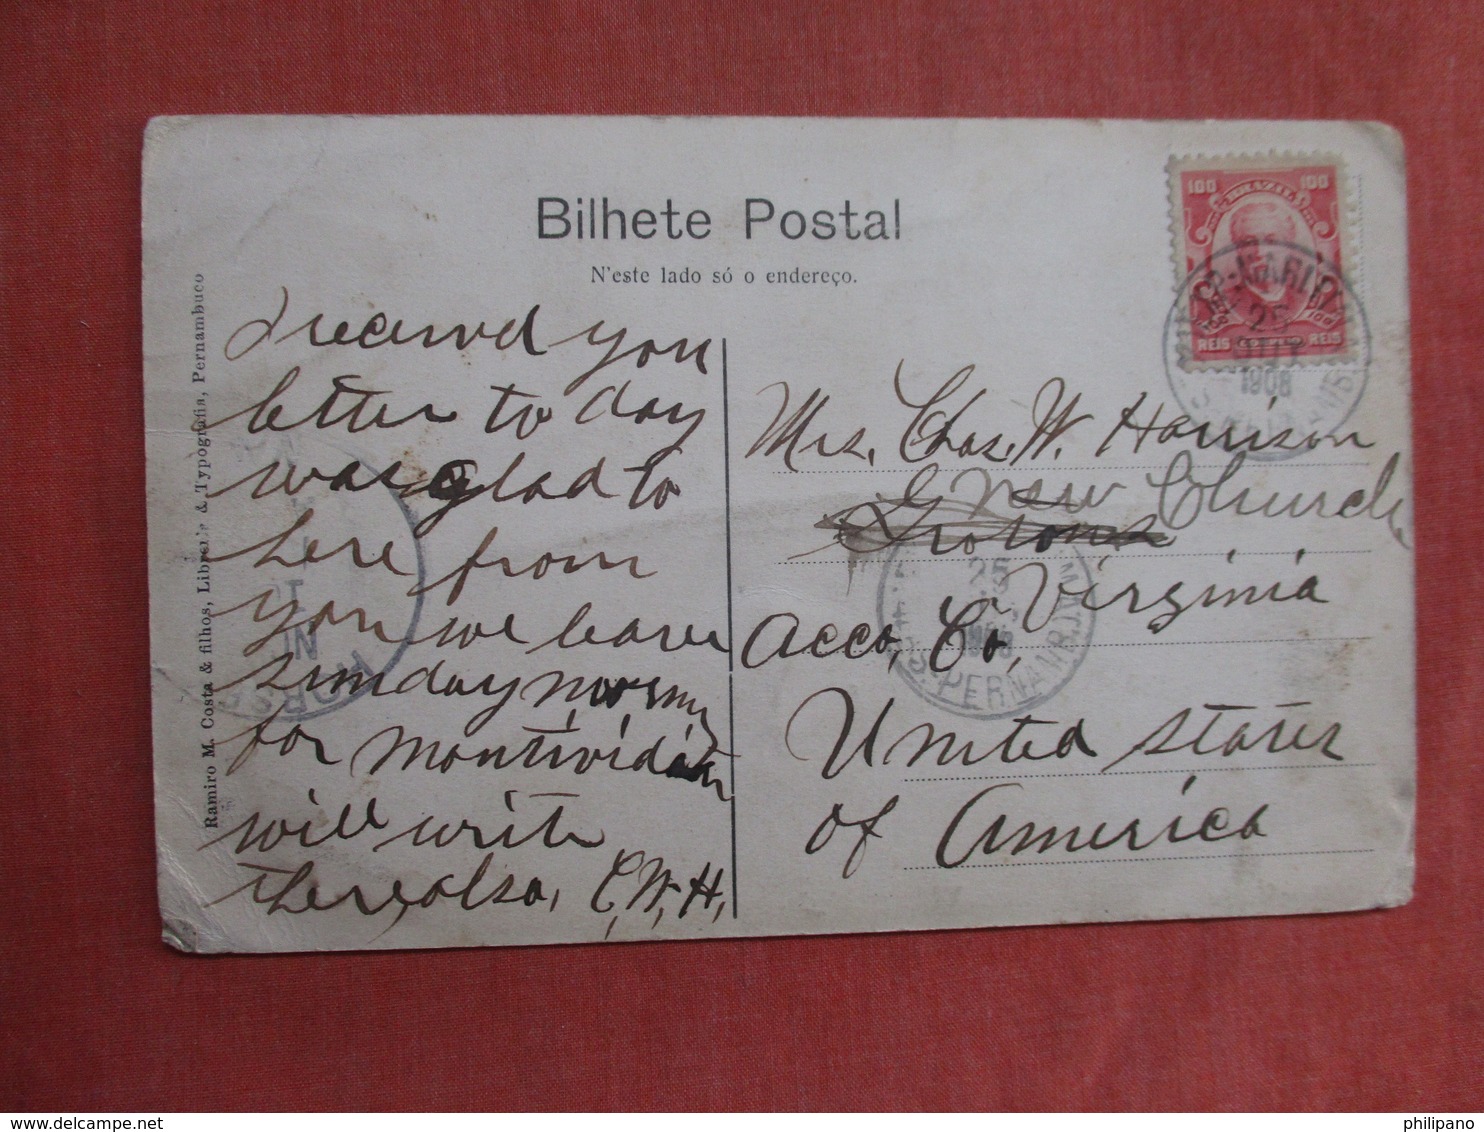 Bilhete Postal
N'este lado só o endereço.
Ramiro M. Costa & filhos, Livraria & Typografia, Pernambuco
100 BRAZIL 100
REIS REIS
25
1908
I received you
letter to day
was glad to
here from
you we leave
Sunday morning
for Montivido
will write
there also, C.W.H,
Mrs. Chas. W. Harrison
New Church
Virginia
Acco, Co,
United States
of America
25
1908
PERNAMBUCO
HORSE
philipano